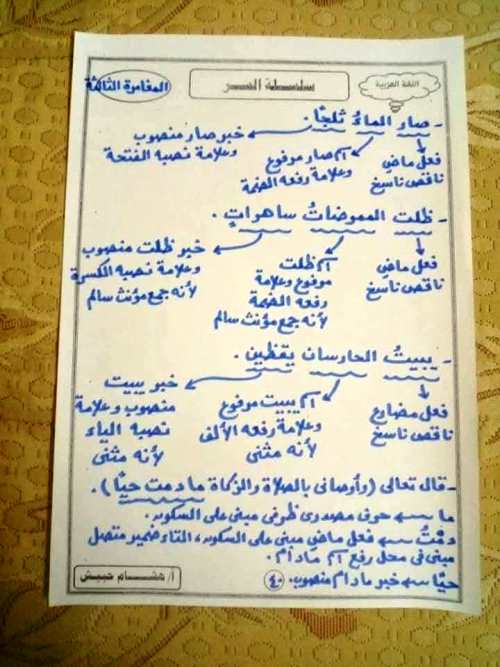 اللغة العربية
سلسلة السر
المغامرة الثالثة
- صار الماءُ ثلجًا.
فعل ماضٍ
ناقص ناسخ
اسم صار مرفوع
وعلامة رفعه الضمة
خبر صار منصوب
وعلامة نصبه الفتحة
- ظلت الممرضاتُ ساهراتٍ.
فعل ماضٍ
ناقص ناسخ
اسم ظلت
مرفوع وعلامة
رفعه الضمة
لأنه جمع مؤنث سالم
خبر ظلت منصوب
وعلامة نصبه الكسرة
لأنه جمع مؤنث سالم
- يبيتُ الحارسان يقظين.
فعل مضارع
ناقص ناسخ
اسم يبيت مرفوع
وعلامة رفعه الألف
لأنه مثنى
خبر يبيت
منصوب وعلامة
نصبه الياء
لأنه مثنى
- قال تعالى (وأوصانى بالصلاة والزكاة مادمت حيًا).
ما ← حرف مصدرى ظرفى مبنى على السكون.
دمْتُ ← فعل ماضٍ مبنى على السكون، التاء ضمير متصل
مبنى فى محل رفع اسم مادام.
حيًا ← خبر مادام منصوب.
٤٠
أ/ هشام حبيش